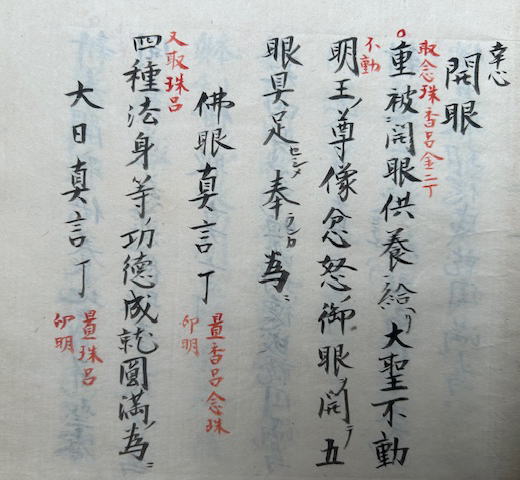 幸心
開眼
取念珠香呂金二丁
重被開眼供養給フ大聖不動
不動
明王ノ尊像忿怒御眼ヲ開テ五
眼具足セシメ奉ラシカ為ニ
佛眼真言丁
置香呂念珠
印明
又取珠呂
四種法身等功德成就圓満ノ為ニ
大日真言丁
置珠呂
印明